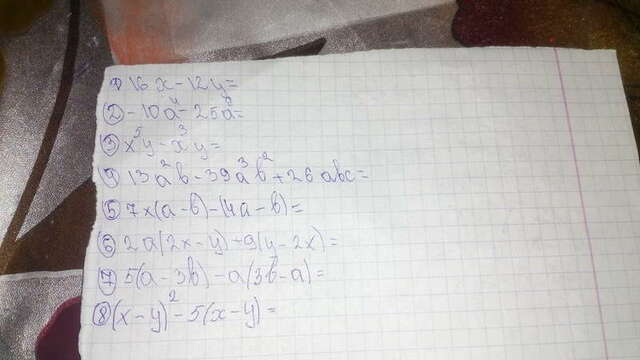 1) 16x-12y=
2) -10a⁴-25a⁸=
3) x⁵y-x³y=
4) 13a²b-39a³b²+26abc=
5) 7x(a-b)-(4a-b)=
6) 2a(2x-y)+9(y-2x)=
7) 5(a-3b)-a(3b-a)=
8) (x-y)²-5(x-y)=